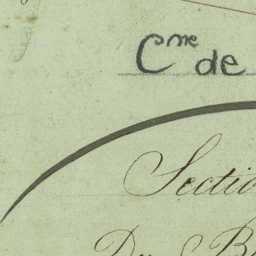 Cme de
Sectio
Du B